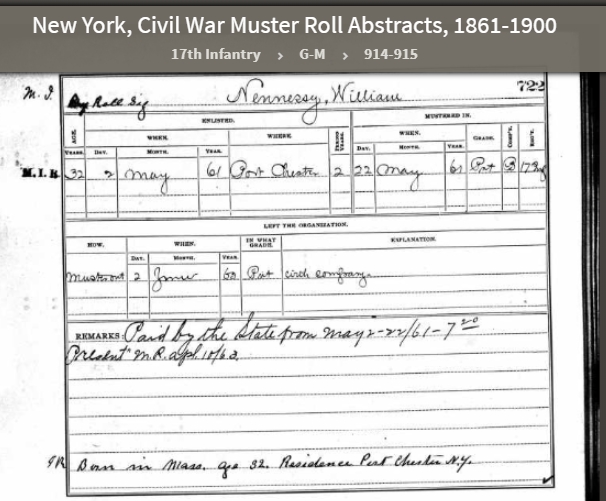 New York, Civil War Muster Roll Abstracts, 1861-1900
17th Infantry › G-M › 914-915
M. I. Roll Sig Hennessy, William 722
ENLISTED. MUSTERED IN.
AGE. WHEN. WHERE. PERIOD YEARS. WHEN. GRADE. COMP'Y. REG'T.
YEARS. DAY. MONTH. YEAR. DAY. MONTH. YEAR.
M.I.R 32 2 May 61 Port Chester 2 22 May 61 Pvt B 17
LEFT THE ORGANIZATION.
HOW. WHEN. IN WHAT GRADE. EXPLANATION.
DAY. MONTH. YEAR.
Must out 2 June 63 Pvt with company.
REMARKS: Paid by the State from May 2-22/61-7 20
Present M.R. apl. 10/63.
Born in Mass. age 32. Residence Port Chester N.Y.